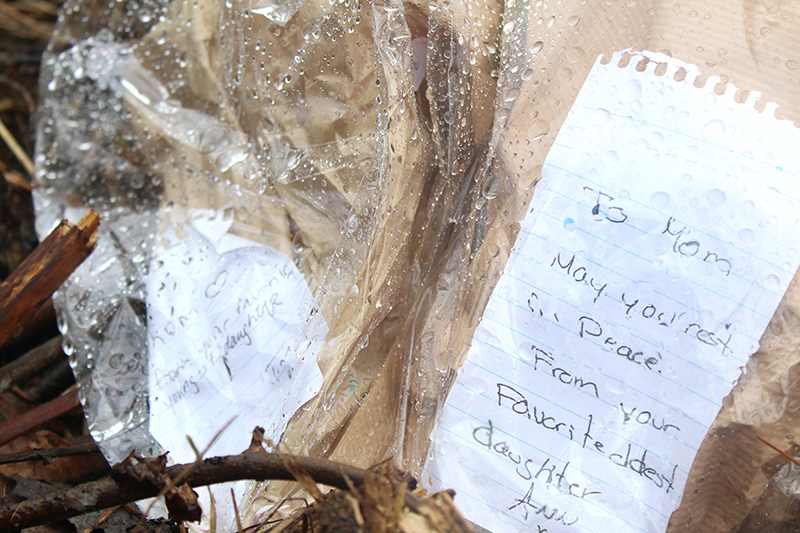 To Mom
May you'rest
in Peace.
From your
Favorite eldest
daughter
Ann
From your
youngest daughter